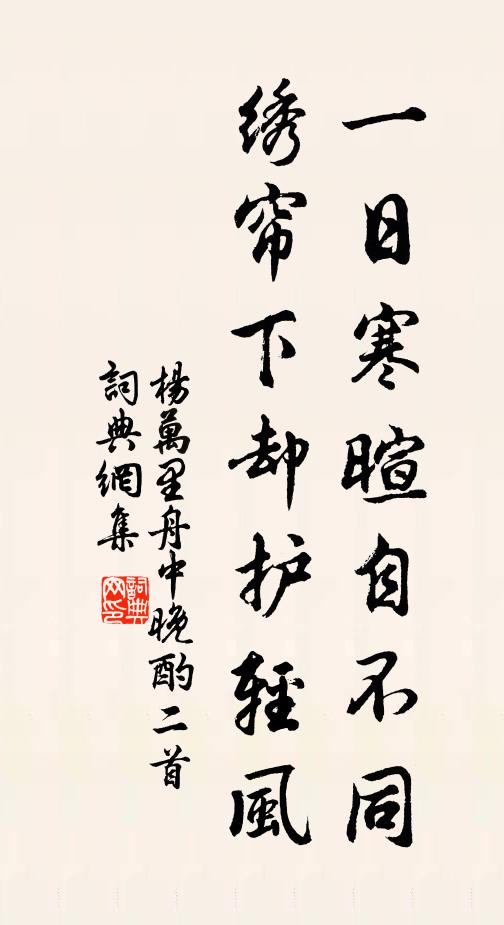 一日寒暄自不同
绣帘下却护輕風
楊萬里舟中晚酌二首
詞典網集
詞典
网印